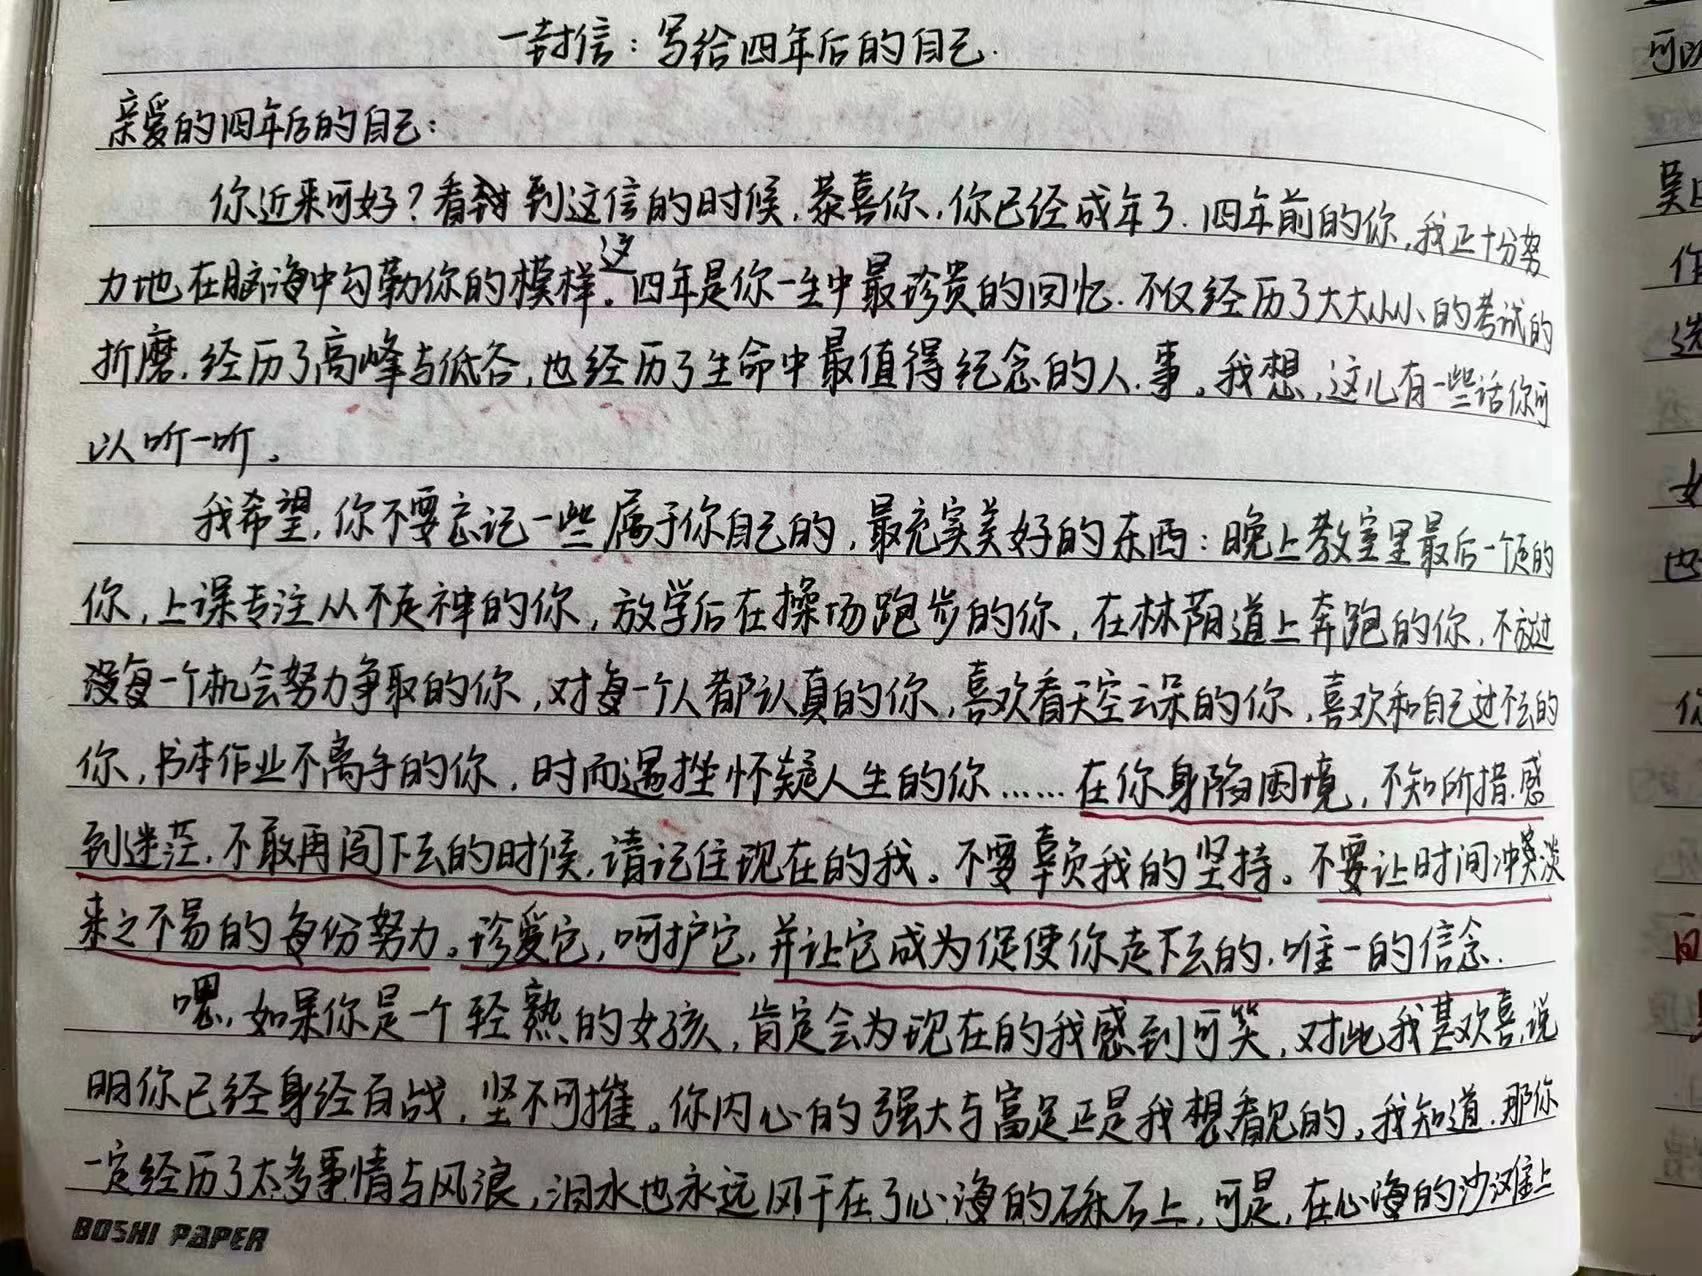 一封信：写给四年后的自己.
亲爱的四年后的自己：
你近来可好？看到这信的时候，恭喜你，你已经成年了．四年前的你，我正十分努
力地在脑海中勾勒你的模样。这四年是你一生中最珍贵的回忆．不仅经历了大大小小的考试的
折磨．经历了高峰与低谷，也经历了生命中最值得纪念的人．事。我想，这儿有一些话你可
以听一听。
我希望，你不要忘记一些属于你自己的，最充实美好的东西：晚上教室里最后一个走的
你，上课专注从不走神的你，放学后在操场跑步的你，在林荫道上奔跑的你，不放过
每一个机会努力争取的你，对每一个人都认真的你，喜欢看天空云朵的你，喜欢和自己过不去的
你，书本作业不离手的你，时而遇挫怀疑人生的你……在你身陷困境，不知所措．感
到迷茫．不敢再闯下去的时候，请记住现在的我。不要辜负我的坚持。不要让时间冲淡
来之不易的每份努力。珍爱它，呵护它，并让它成为促使你走下去的．唯一的信念．
嘿，如果你是一个轻熟的女孩，肯定会为现在的我感到可笑，对此我甚欢喜，说
明你已经身经百战，坚不可摧。你内心的强大与富足正是我想看见的，我知道．那你
一定经历了太多事情与风浪，泪水也永远风干在了心海的礁石上，可是，在心海的沙滩上
BOSHI PAPER